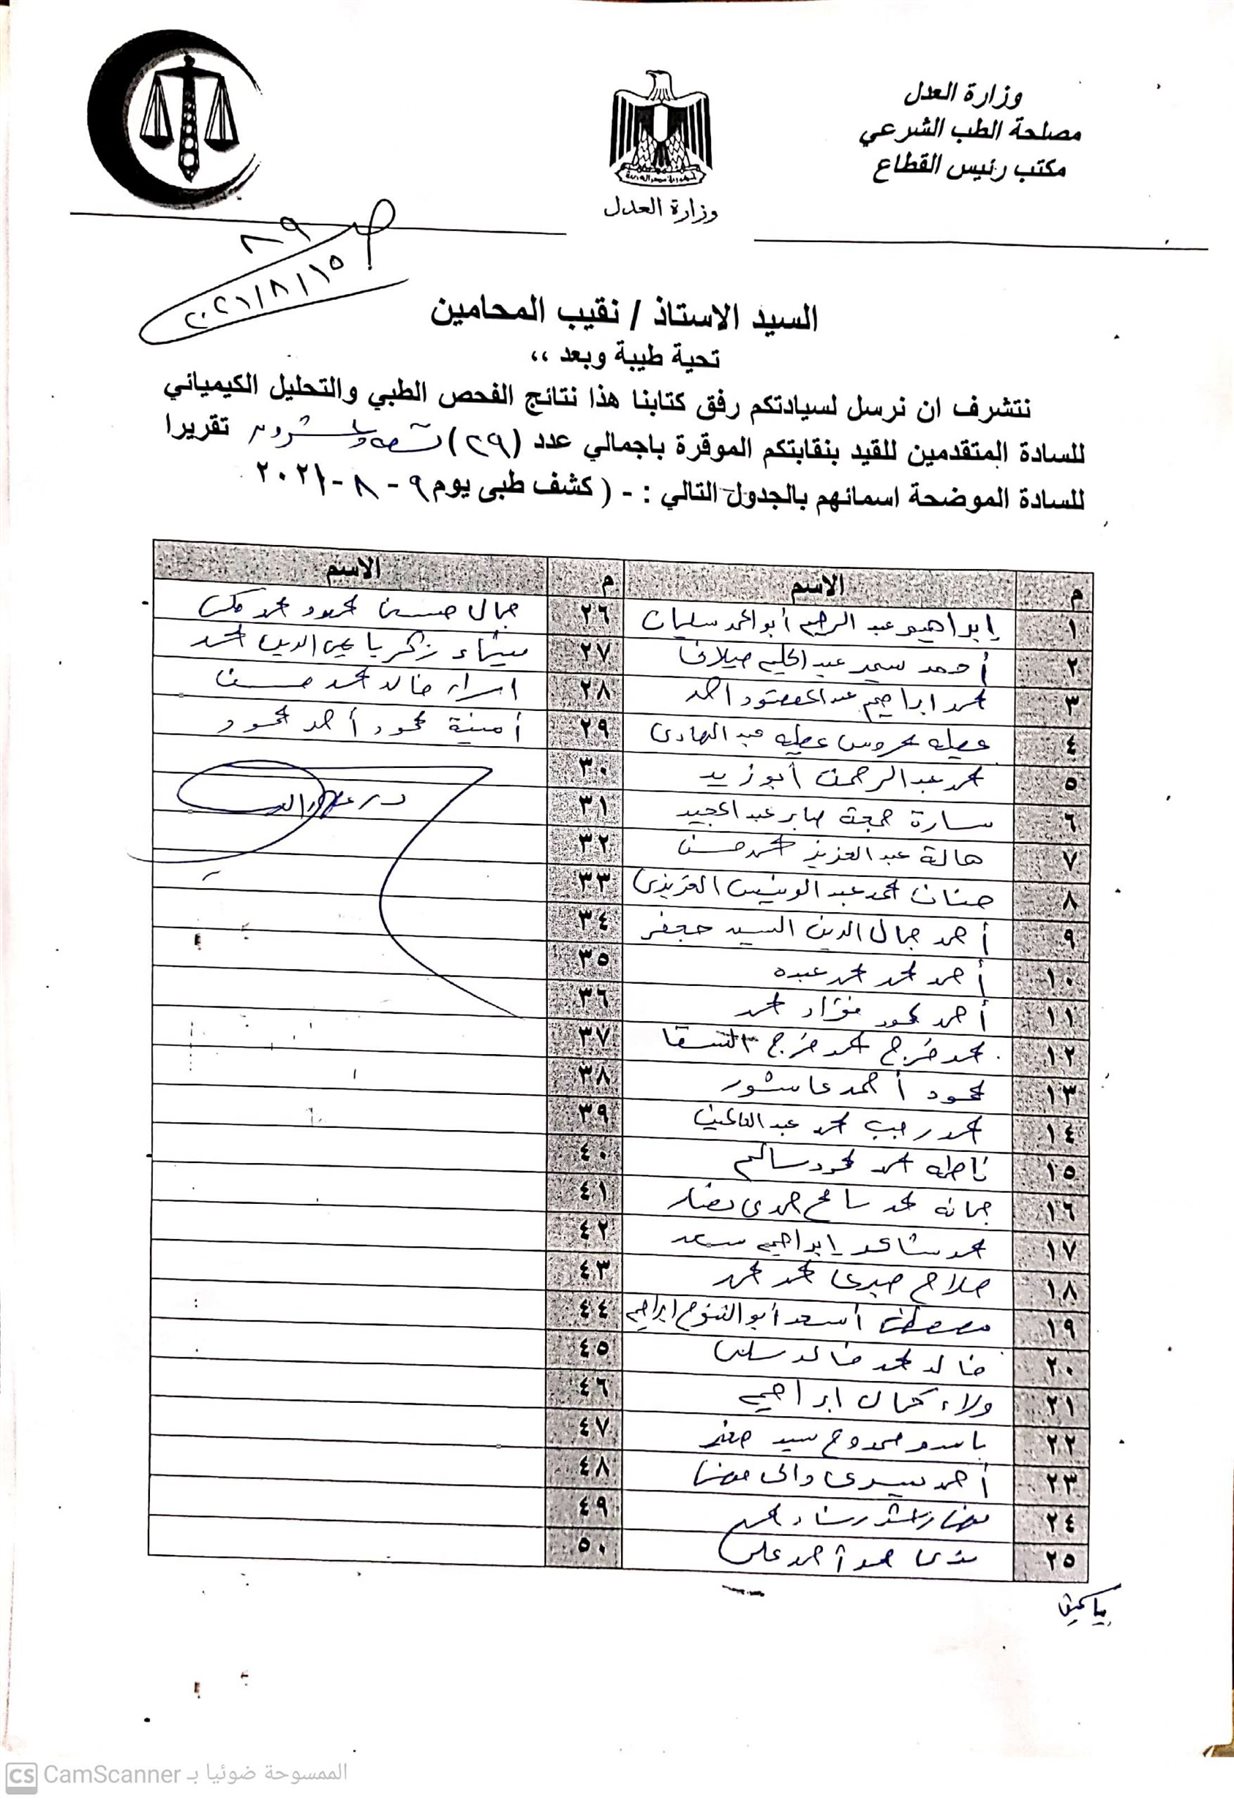 وزارة العدل
مصلحة الطب الشرعي
مكتب رئيس القطاع
وزارة العدل
٨٩
٢٠٢١/٨/١٥
السيد الاستاذ / نقيب المحامين
تحية طيبة وبعد ،،
نتشرف ان نرسل لسيادتكم رفق كتابنا هذا نتائج الفحص الطبي والتحليل الكيميائي
للسادة المتقدمين للقيد بنقابتكم الموقرة باجمالي عدد (٢٩) تسعة وعشرون تقريرا
للسادة الموضحة اسمائهم بالجدول التالي : - ( كشف طبى يوم ٩ - ٨ - ٢٠٢١
م الاسم م الاسم
١ إبراهيم عبد الرحيم أبو الحمد سليمان ٢٦ جمال حسين محمود محمد
٢ أحمد سمير عبد الحليم ٢٧ زكريا يحيى الدين محمد
٣ محمد ابراهيم عبد المقصود احمد ٢٨ اسراء خالد محمد حسن
٤ عطيه محروس عطيه عبد الهادى ٢٩ أمنية محمود أحمد محمود
٥ محمد عبد الرحمن أبو زيد ٣٠
٦ سارة جمعة صابر عبد المجيد ٣١
٧ هالة عبد العزيز محمد حسن ٣٢
٨ حنان محمد عبد الونيس العزيزى ٣٣
٩ أحمد جمال الدين السيد جعفر ٣٤
١٠ أحمد محمد محمد عبده ٣٥
١١ أحمد محمود فؤاد محمد ٣٦
١٢ محمد فرج محمد فرج السقا ٣٧
١٣ محمود أحمد عاشور ٣٨
١٤ محمد رجب محمد عبد العاطين ٣٩
١٥ فاطمه محمد محمود سالم ٤٠
١٦ جمانه محمد سامح حمدى ٤١
١٧ محمد إبراهيم سعد ٤٢
١٨ صلاح صبرى محمد محمد ٤٣
١٩ مصطفى أسعد أبو الفتوح ابراهيم ٤٤
٢٠ خالد محمد خالد ٤٥
٢١ ولاء كمال ابراهيم ٤٦
٢٢ ممدوح سيد ٤٧
٢٣ أحمد يسرى والى ٤٨
٢٤ رشاد ٤٩
٢٥ أحمد على ٥٠
CS CamScanner الممسوحة ضوئيا بـ